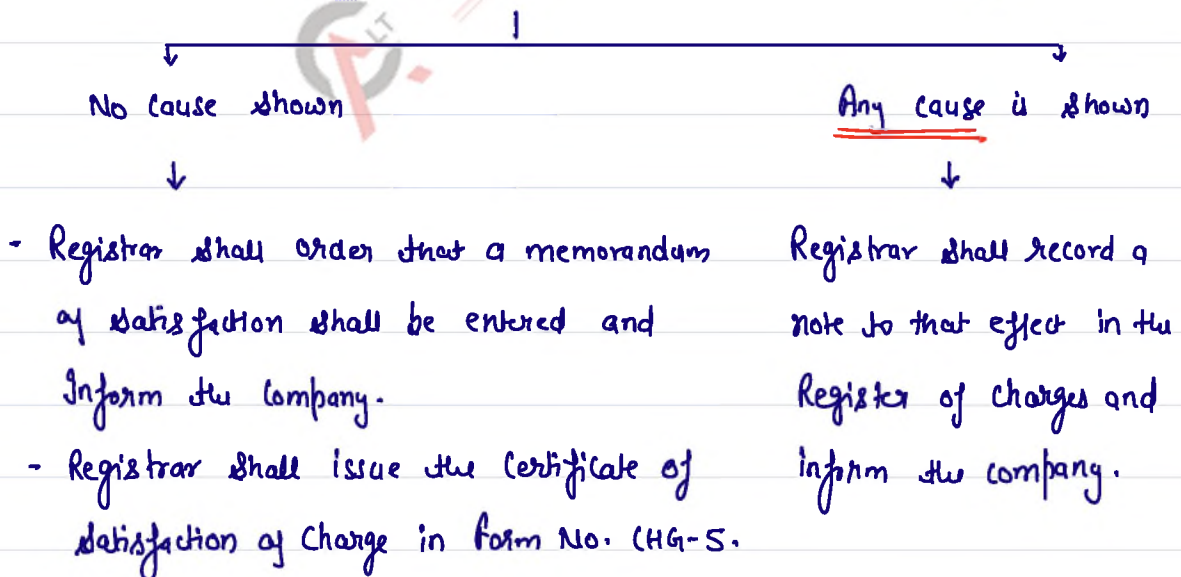 LT
No cause shown
Any cause is shown
- Registrar shall order that a memorandum
of satisfaction shall be entered and
Inform the Company.
- Registrar shall issue the Certificate of
satisfaction of Charge in form No. CHG-5.
Registrar shall record a
note to that effect in the
Register of charges and
inform the company.